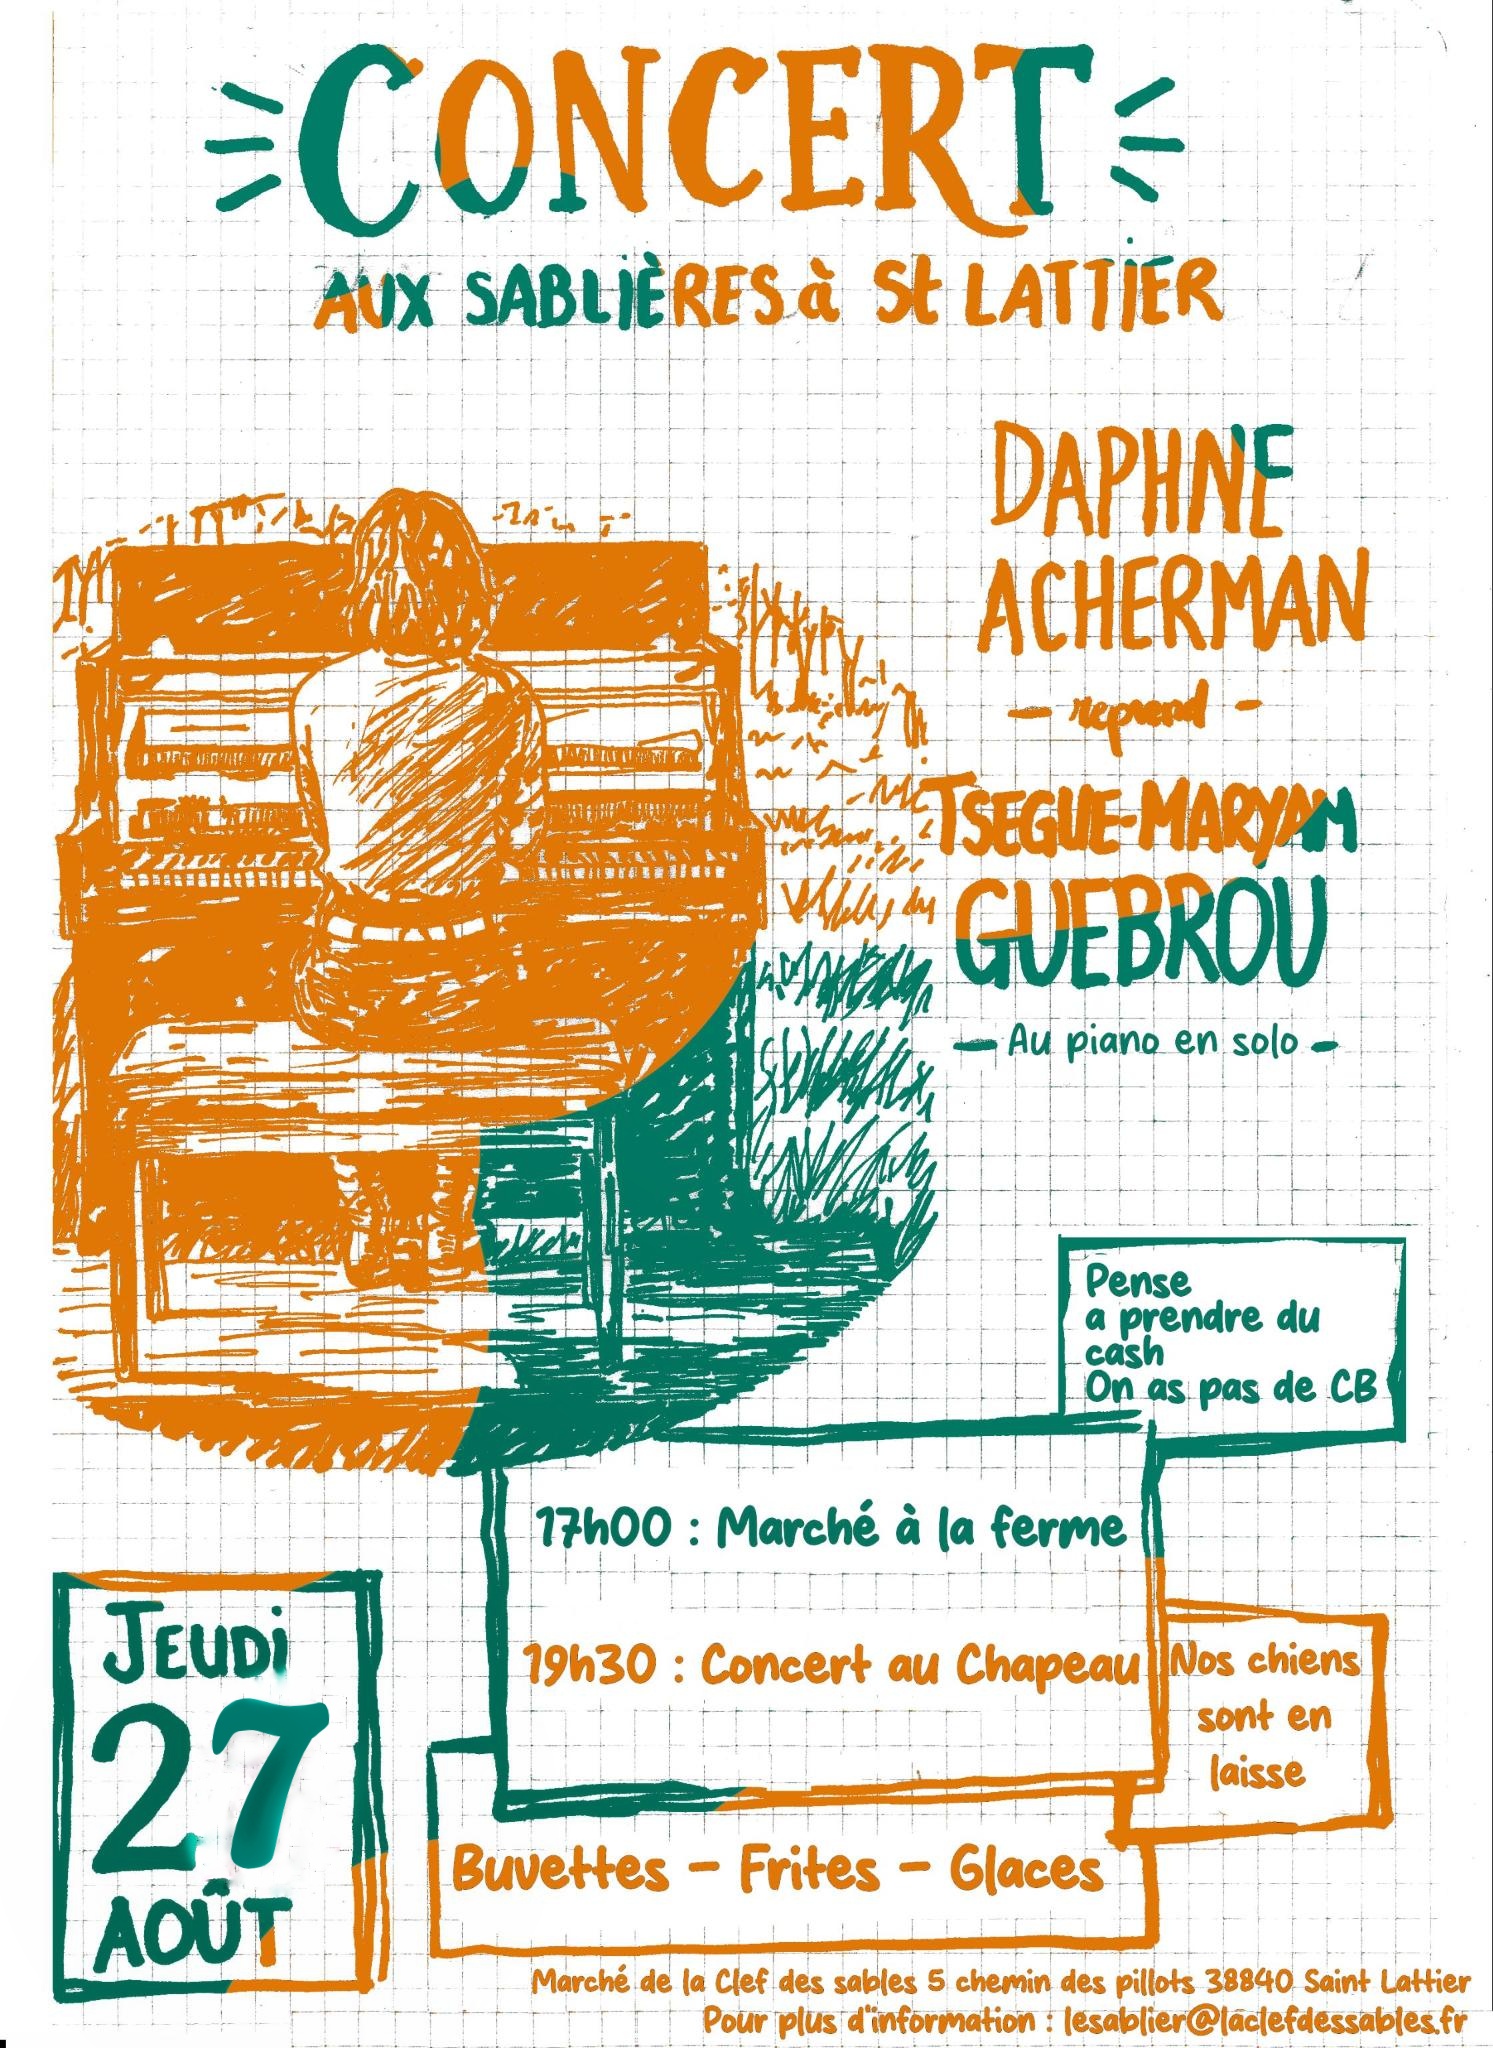 CONCERT
AUX SABLIÈRES à St LATTIER
DAPHNE
ACHERMAN
- reprend -
TSEGUE-MARYAM
GUEBROU
- Au piano en solo -
Pense
a prendre du
cash
On as pas de CB
17h00 : Marché à la ferme
19h30 : Concert au Chapeau
Nos chiens
sont en
laisse
JEUDi
27
AOÛT
Buvettes - Frites - Glaces
Marché de la Clef des sables 5 chemin des pillots 38840 Saint Lattier
Pour plus d'information : lesablier@laclefdessables.fr